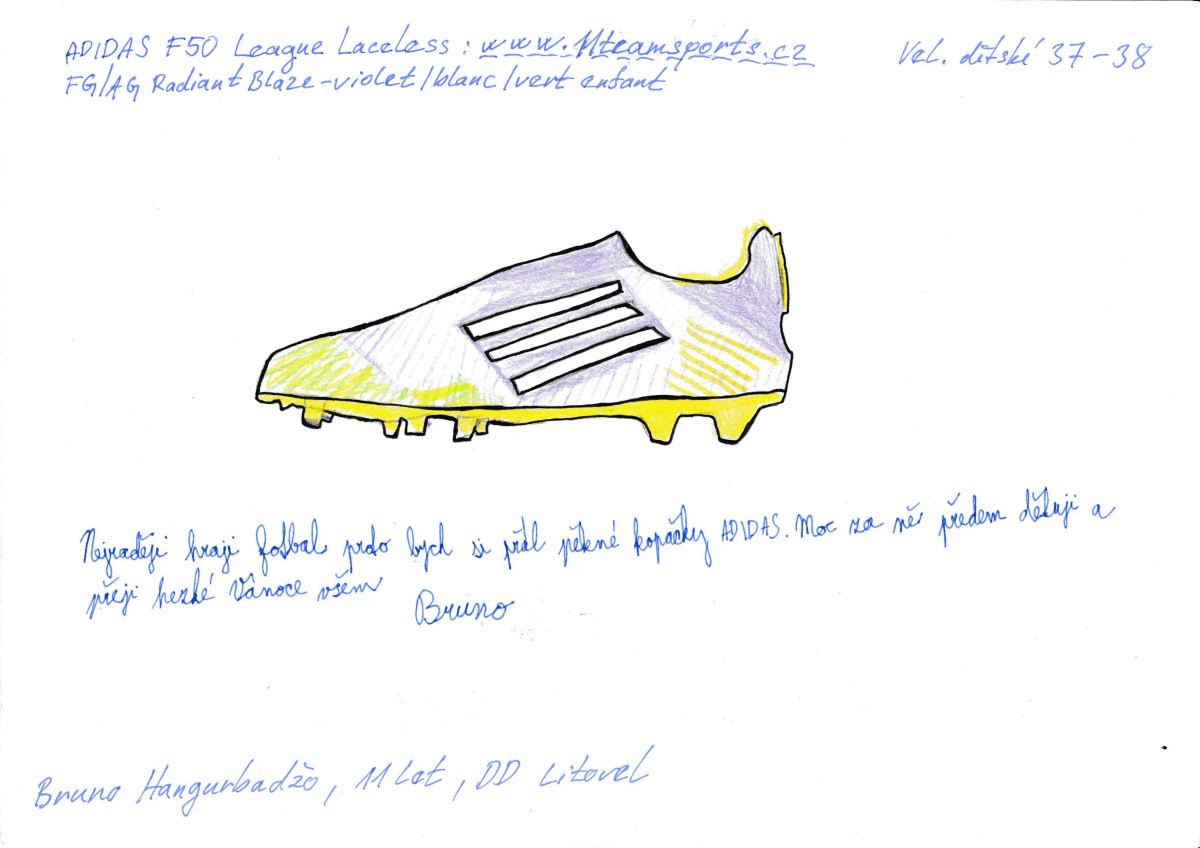 ADIDAS F50 League Laceless : www.11teamsports.cz
Vel. dětské 37-38
FG/AG Radiant Blaze-violet/blanc/vert enfant
Nejraději hraji fotbal proto bych si přál pěkné kopačky ADIDAS. Moc za ně předem děkuji a
přeji hezké Vánoce všem
Bruno
Bruno Hangurbadžo, 11 let, DD Litovel